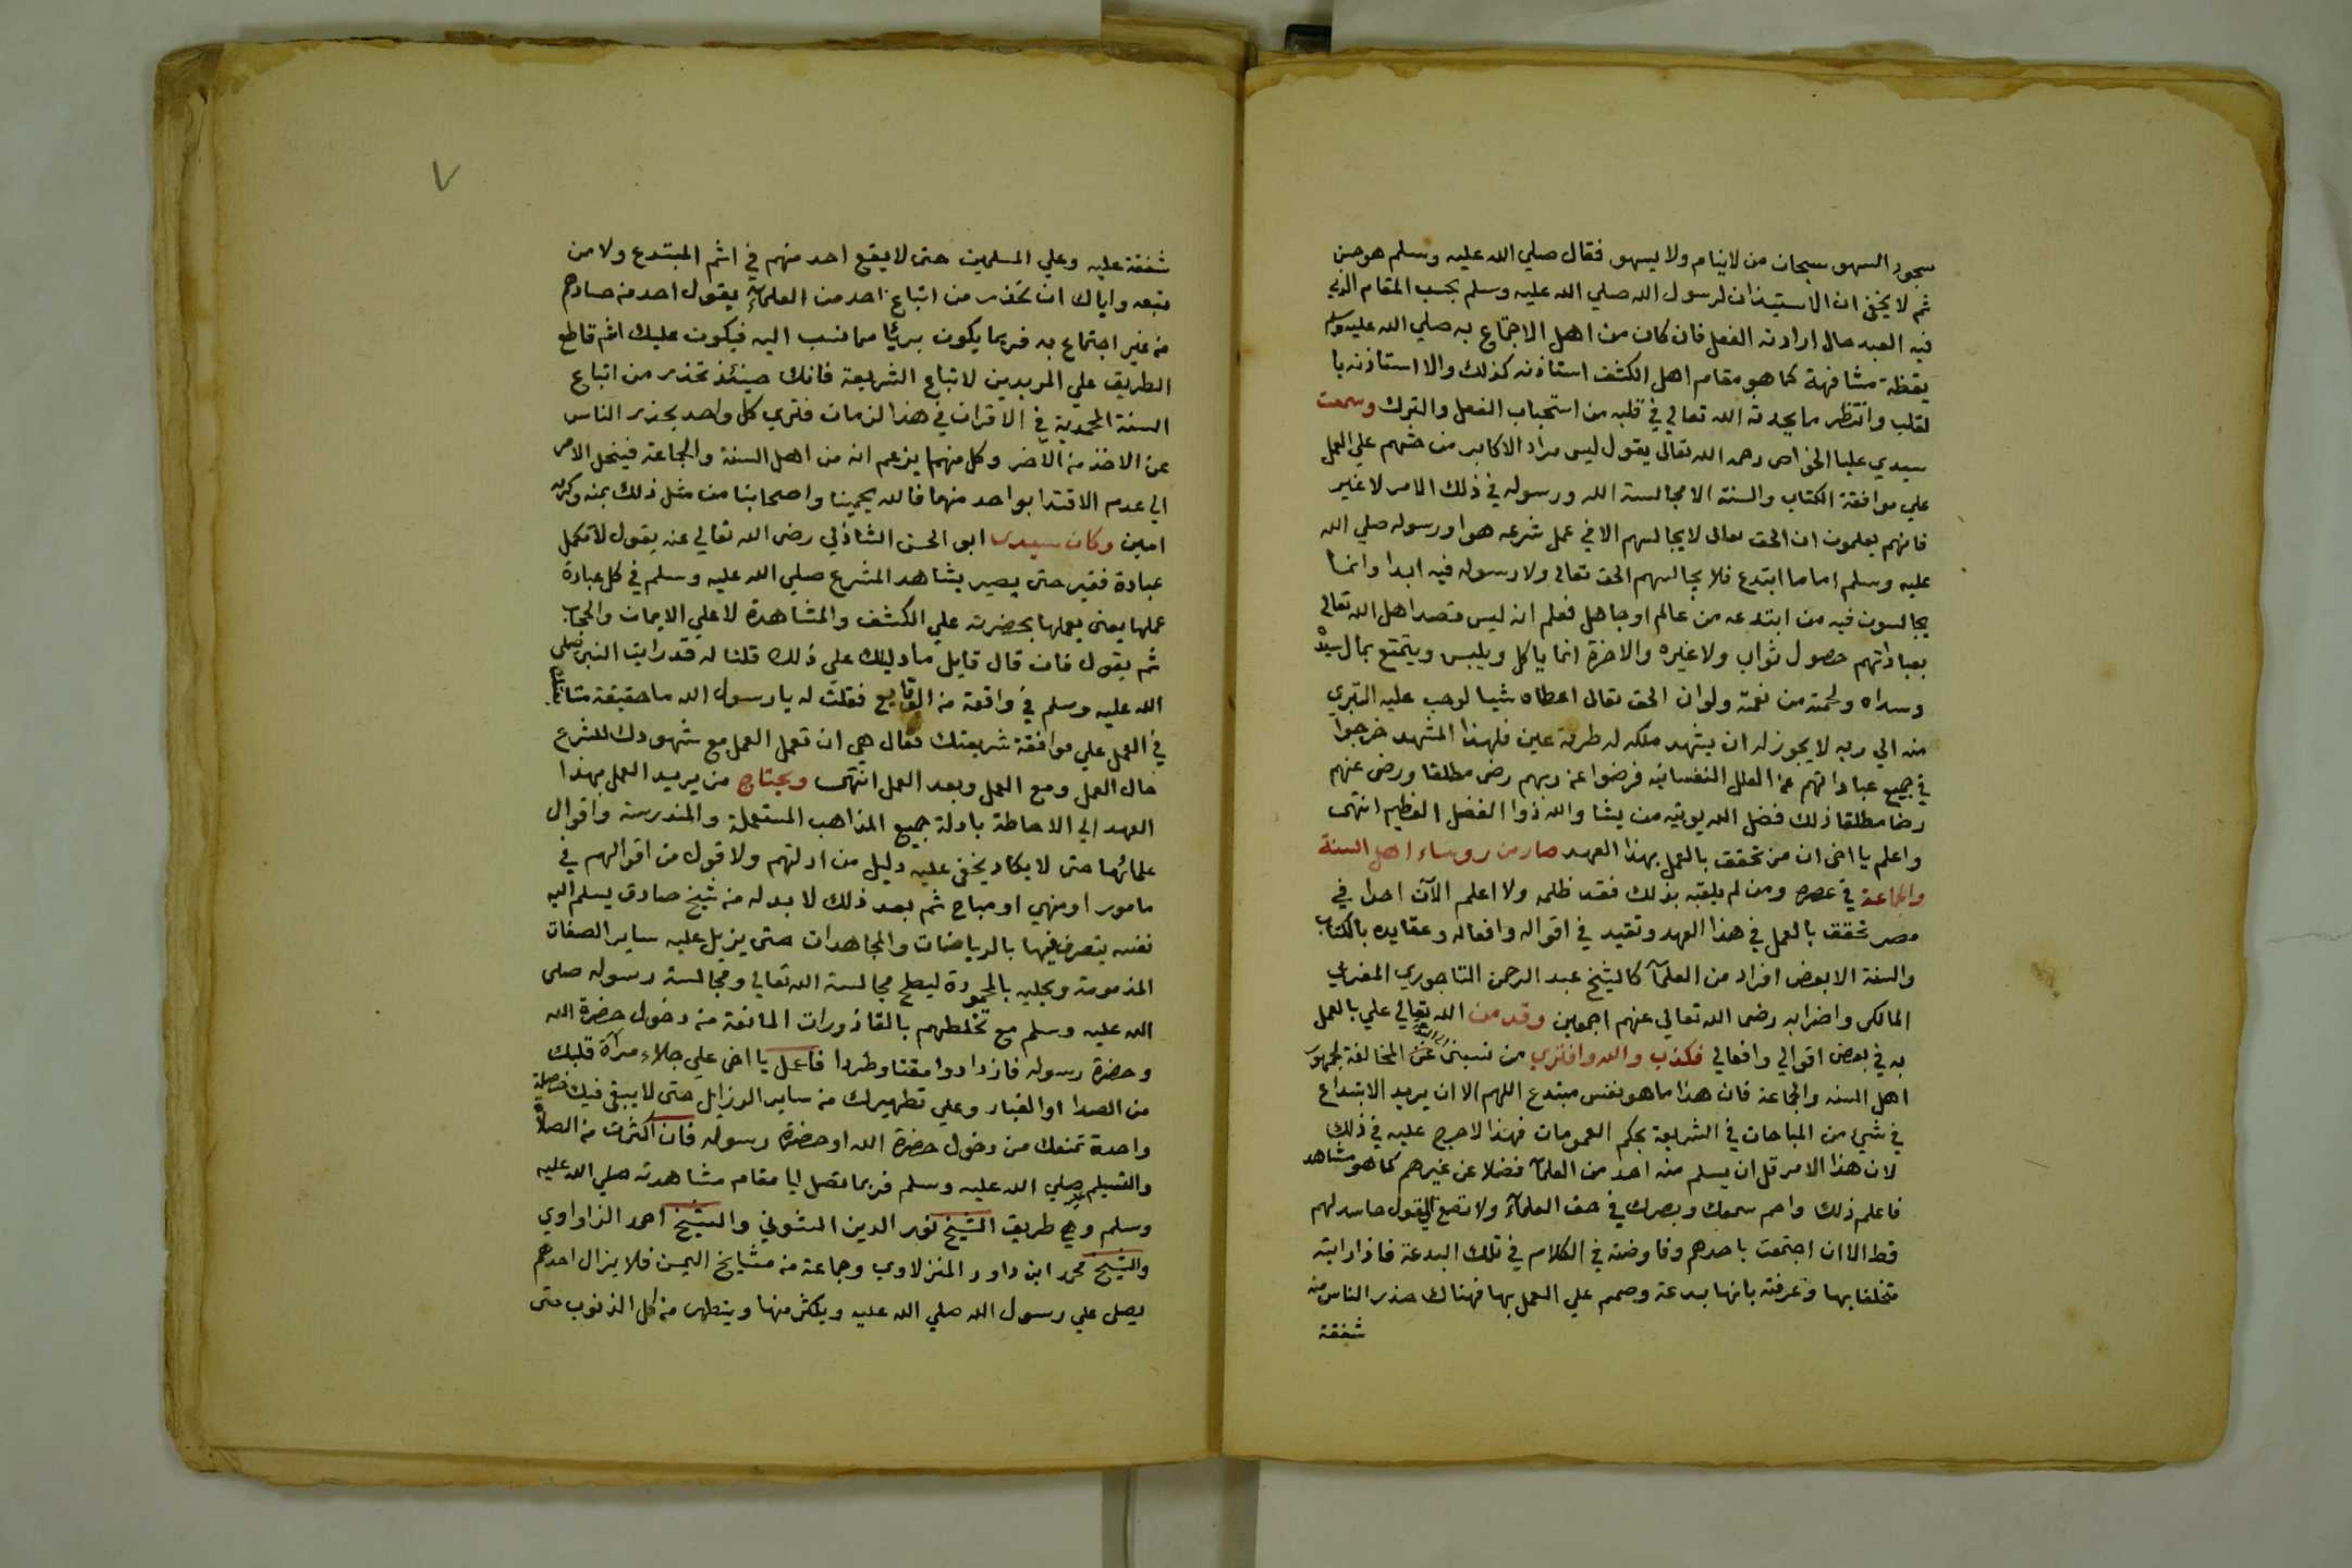 سجود السهو سبحان من لاينام ولا يسهو فقال صلي الله عليه وسلم هو حسن
ثم لا يخفى ان الاستيذان لرسول الله صلي الله عليه وسلم بحسب المقام الذي
فيه العبد حال ارادته الفعل فان كان من اهل الاجتماع به صلي الله عليه وسلم
يقظة مشافهة كما هو مقام اهل الكشف استاذنه كذلك والا استاذنه با
لقلب وانتظر ما يحدثه الله تعالي في قلبه من استحباب الفعل والترك وسمعت
سيدي عليا الخواص رحمه الله تعالى يقول ليس مراد الاكابر من حثهم علي العمل
علي موافقة الكتاب والسنة الا مجالسة الله ورسوله في ذلك الامر لا غير
فانهم يعلمون ان الحق تعالى لا يجالسهم الا في عمل شرعه هو او رسوله صلي الله
عليه وسلم اما ما ابتدع فلا يجالسهم الحق تعالى ولا رسوله فيه ابدا وانما
يجالسون فيه من ابتدعه من عالم او جاهل فعلم انه ليس قصد اهل الله تعالى
بعباداتهم حصول ثواب ولا غيره والاخرة انما ياكل ويلبس ويتمتع بمال سيده
وسداه ولحمته من نعمته ولو ان الحق تعالى اعطاه شيا لوجب عليه التبري
منه الي ربه لا يجوز له ان يشهد ملكه له طرفة عين فلهذا المشهد خرجوا
في جميع عباداتهم عن العلل النفسانيه فرضوا عن ربهم رضى مطلقا ورضى عنهم
رضا مطلقا ذلك فضل الله يوتيه من يشا والله ذوا الفضل العظيم انتهى
واعلم يا اخى ان من تحقق بالعمل بهذا العهد صار من روساء اهل السنة
والجماعة في عصره ومن لم يلقبه بذلك فقد ظلمه ولا اعلم الآن احدا في
مصر تحقق بالعمل في هذا العهد وتقيد في اقواله وافعاله وعقايده بالكتاب
والسنة الا بعض افراد من العلمآ كالشيخ عبد الرحمن التاجوري المغربي
المالكى واضرابه رضى الله تعالى عنهم اجمعين وقد من الله تعالي علي بالعمل
به في بعض اقوالي وافعالي فكذب والله وافتري من نسبنى المخالفة لجمهور
اهل السنه والجماعة فان هذا ما هو نفس مبتدع اللهم الا ان يريد الابتداع
في شيء من المباحات في الشريعة بحكم العمومات فهذا لا حرج عليه في ذلك
لان هذا الامر قل ان يسلم منه احد من العلمآ فضلا عن غيرهم كما هو مشاهد
فاعلم ذلك واحم سمعك وبصرك في حق العلمآء ولا تصغ الي قول حاسد لهم
قط الا ان اجتمعت باحدهم وفاوضته في الكلام في تلك البدعة فاذا رايته
متخلقا بها وعرفته بانها بدعة وصمم علي العمل بها فهناك حذر الناس منه
شفقة
٧
شفقة عليه وعلي المسلمين حتى لا يقع احد منهم في اثم المبتدع ولا من
تبعه واياك ان تحذر من اتباع احد من العلمآء يقول احد من حسادهم
من غير اجتماع به فربما يكون بريئا مما نسب اليه فيكون عليك اثم قاطع
الطريق علي المريدين لاتباع الشريعة فانك حينئذ تحذر من اتباع
السنة المحمدية في الاقران في هذا لزمان فتري كل واحد يحذر الناس
عن الاخذ من الاخر وكل منهما يزعم انه من اهل السنة والجماعة فينحل الامر
الي عدم الاقتدا بواحد منهما فالله يحمينا واصحابنا من مثل ذلك بمنه وكرمه
امين وكان سيدى ابو الحسن الشاذلي رضى الله تعالى عنه يقول لا تكمل
عبادة فقير حتى يصير يشاهد المشرع صلي الله عليه وسلم في كل عبادة
عملها يعنى يعملها بحضرته علي الكشف والمشاهدة لا علي الايمان والحجاب
ثم يقول فان قال قايل ما دليلك علي ذلك قلنا له قد رايت النبى صلى
الله عليه وسلم في واقعة من الوقايع فقلت له يا رسول الله ما حقيقة متابعتك
في العمل علي موافقة شريعتك فقال هي ان تعمل العمل مع شهودك للشرع
حال العمل ومع العمل وبعد العمل انتهى ويحتاج من يريد العمل بهذا
العهد الي الاحاطة بادلة جميع المذاهب المستعملة والمندرسة واقوال
علمائها حتى لا يكاد يخفى عليه دليل من ادلتهم ولا قول من اقوالهم في
مامور او منهي او مباح ثم بعد ذلك لا بد له من شيخ صادق يسلم اليه
نفسه يتصرف فيها بالرياضات والمجاهدات حتى يزيل عليه ساير الصفات
المذمومة ويحليه بالمحمودة ليصلح مجالسة الله تعالي ومجالسة رسوله صلى
الله عليه وسلم مع تخلطهم بالقاذورات المانعة من دخول حضرة الله
وحضرة رسوله فازدادوا مقتا وطردا فاعمل يا اخى علي جلاء مرآة قلبك
من الصدا او الغبار وعلي تطهيرك من ساير الرزايل حتى لا يبقى فيك خصلة
واحدة تمنعك من دخول حضرة الله او حضرة رسوله فان اكثرت من الصلاة
والتسليم صلي الله عليه وسلم فربما تصل ايا مقام مشاهدته صلي الله عليه
وسلم وهي طريق الشيخ نور الدين الشوني والشيخ احمد الزواوي
والشيخ محمد ابن داود المنزلاوي وجماعة من مشايخ اليمن فلا يزال احدهم
يصلى علي رسول الله صلي الله عليه ويكثر منها ويتطهر من كل الذنوب حتى